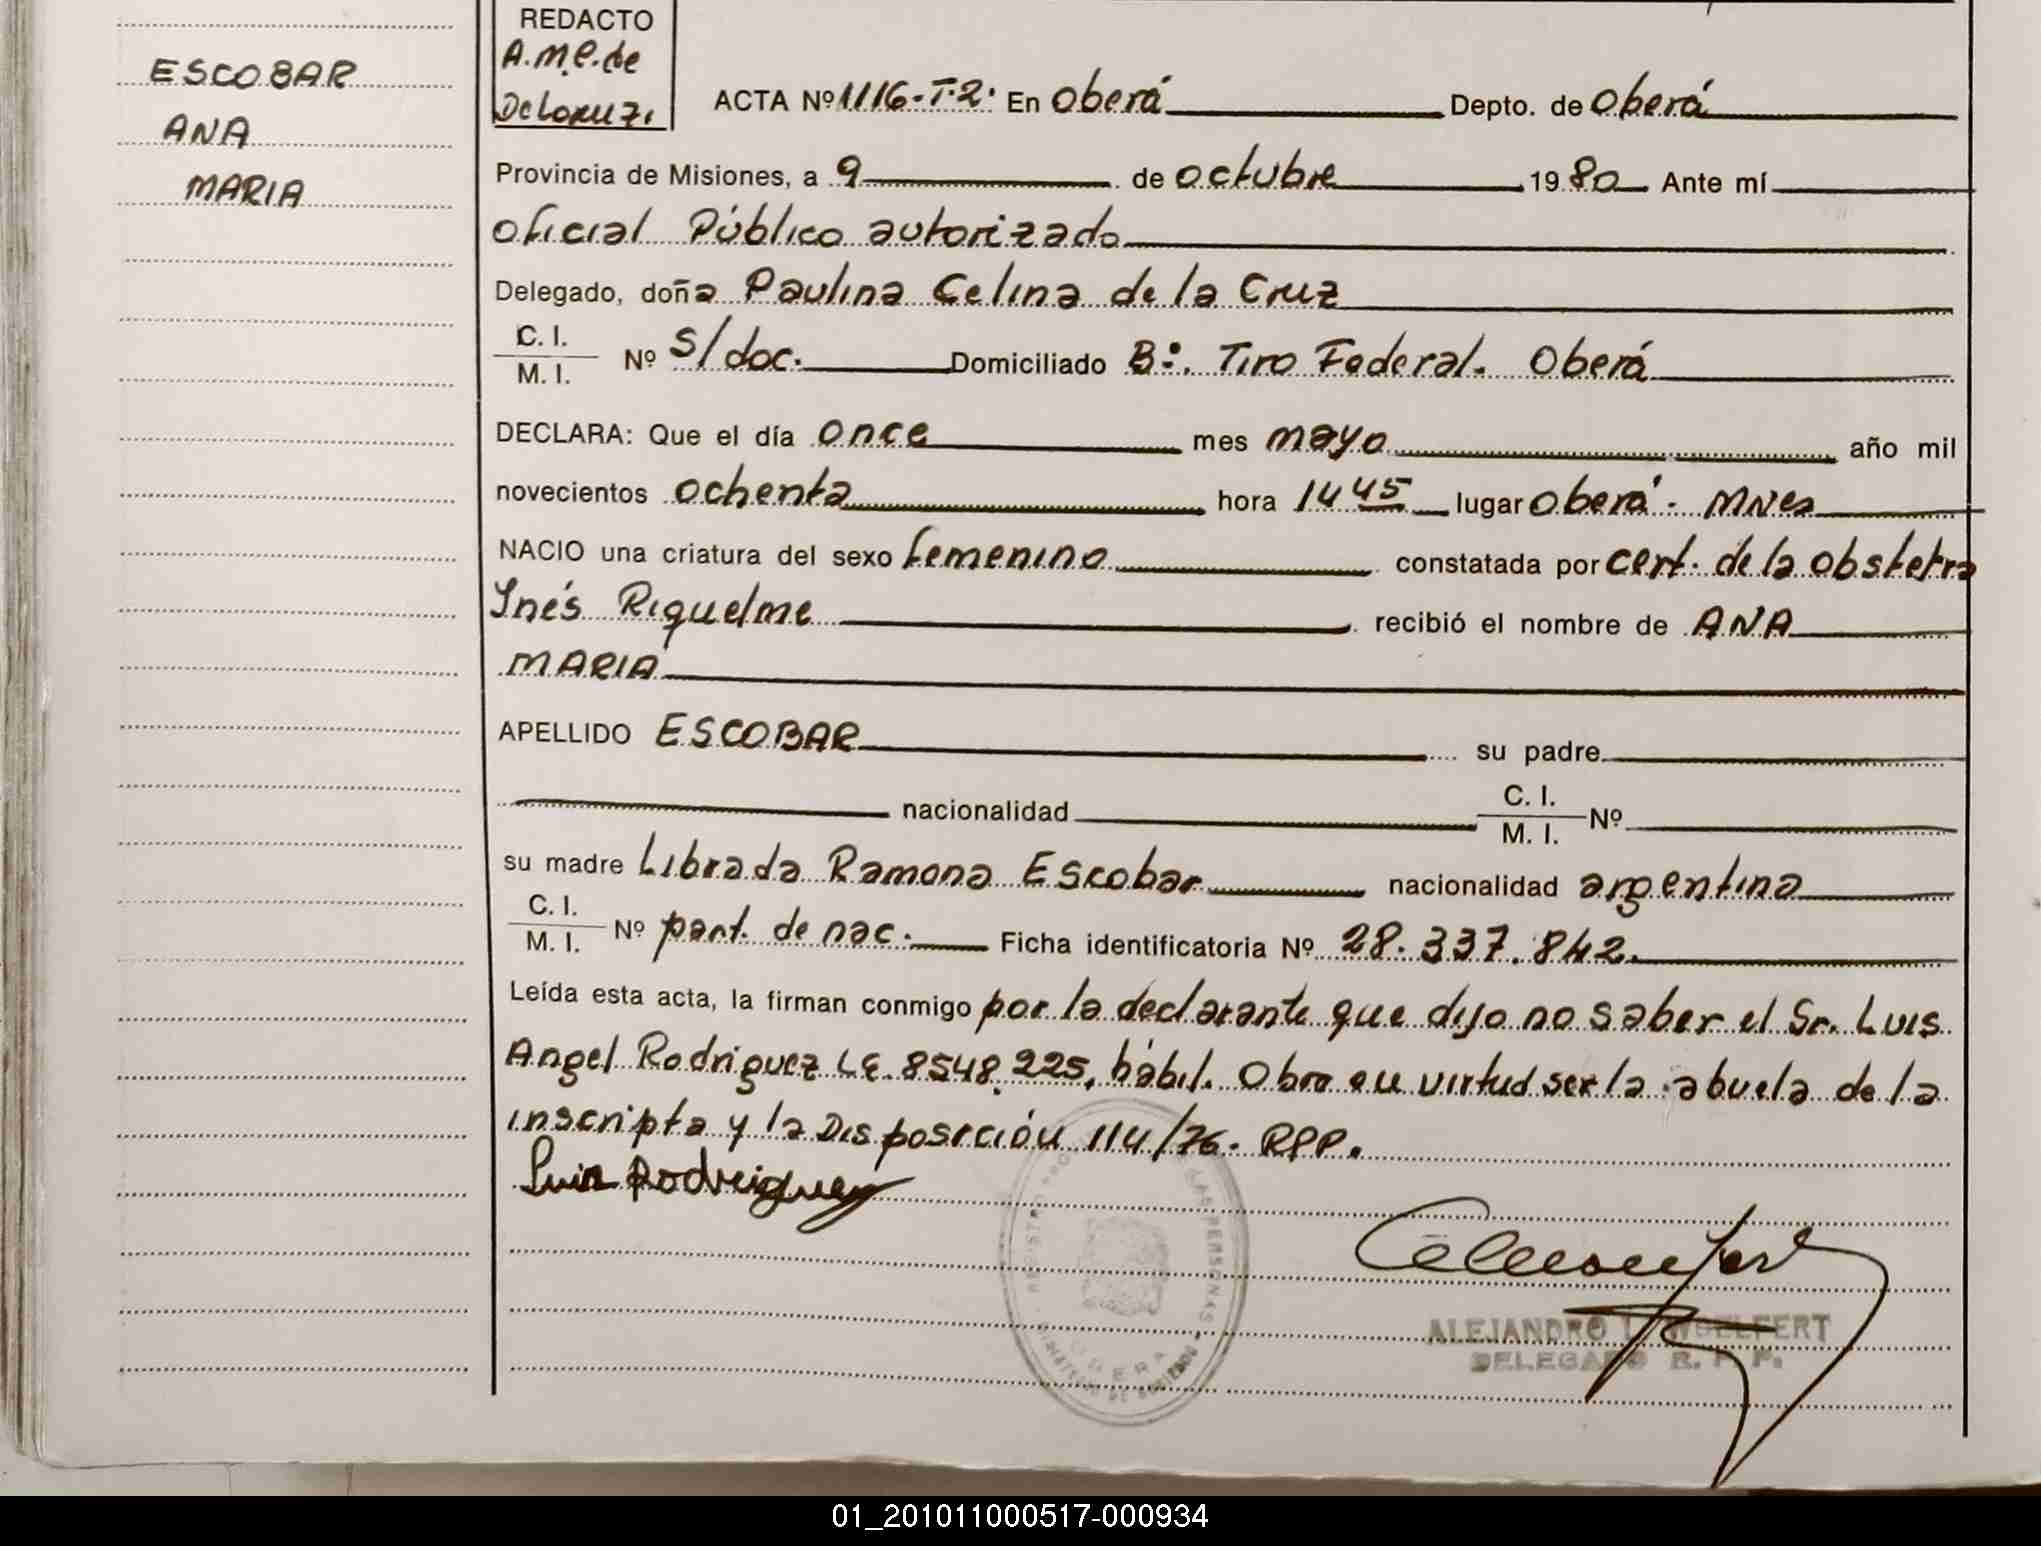 ESCOBAR
ANA
MARIA
REDACTO
A.M.E. de
Delokuzi
ACTA Nº 1116-T-2. En Oberá Depto. de Oberá
Provincia de Misiones, a 9 de octubre 1980 Ante mí
Oficial Público autorizado
Delegado, doña Paulina Celina de la Cruz
C. I.
M. I. Nº s/doc. Domiciliado Bº. Tiro Federal. Oberá
DECLARA: Que el día once mes mayo año mil
novecientos ochenta hora 14 45 lugar Oberá - Mnes
NACIO una criatura del sexo femenino constatada por cert. de la obstetra
Inés Riquelme recibió el nombre de ANA
MARIA
APELLIDO ESCOBAR su padre
nacionalidad C. I.
M. I. Nº
su madre Librada Ramona Escobar nacionalidad argentina
C. I.
M. I. Nº part. de nac. Ficha identificatoria Nº 28.337.842.
Leída esta acta, la firman conmigo por la declarante que dijo no saber el Sr. Luis
Angel Rodriguez LE. 8548.225, hábil. Obra en virtud ser la abuela de la
inscripta y la Disposición 114/76. RPP.
Luis Rodriguez
ALEJANDRO WOELFERT
DELEGADO R. P. P.
LAS PERSONAS
OBERA
01_201011000517-000934